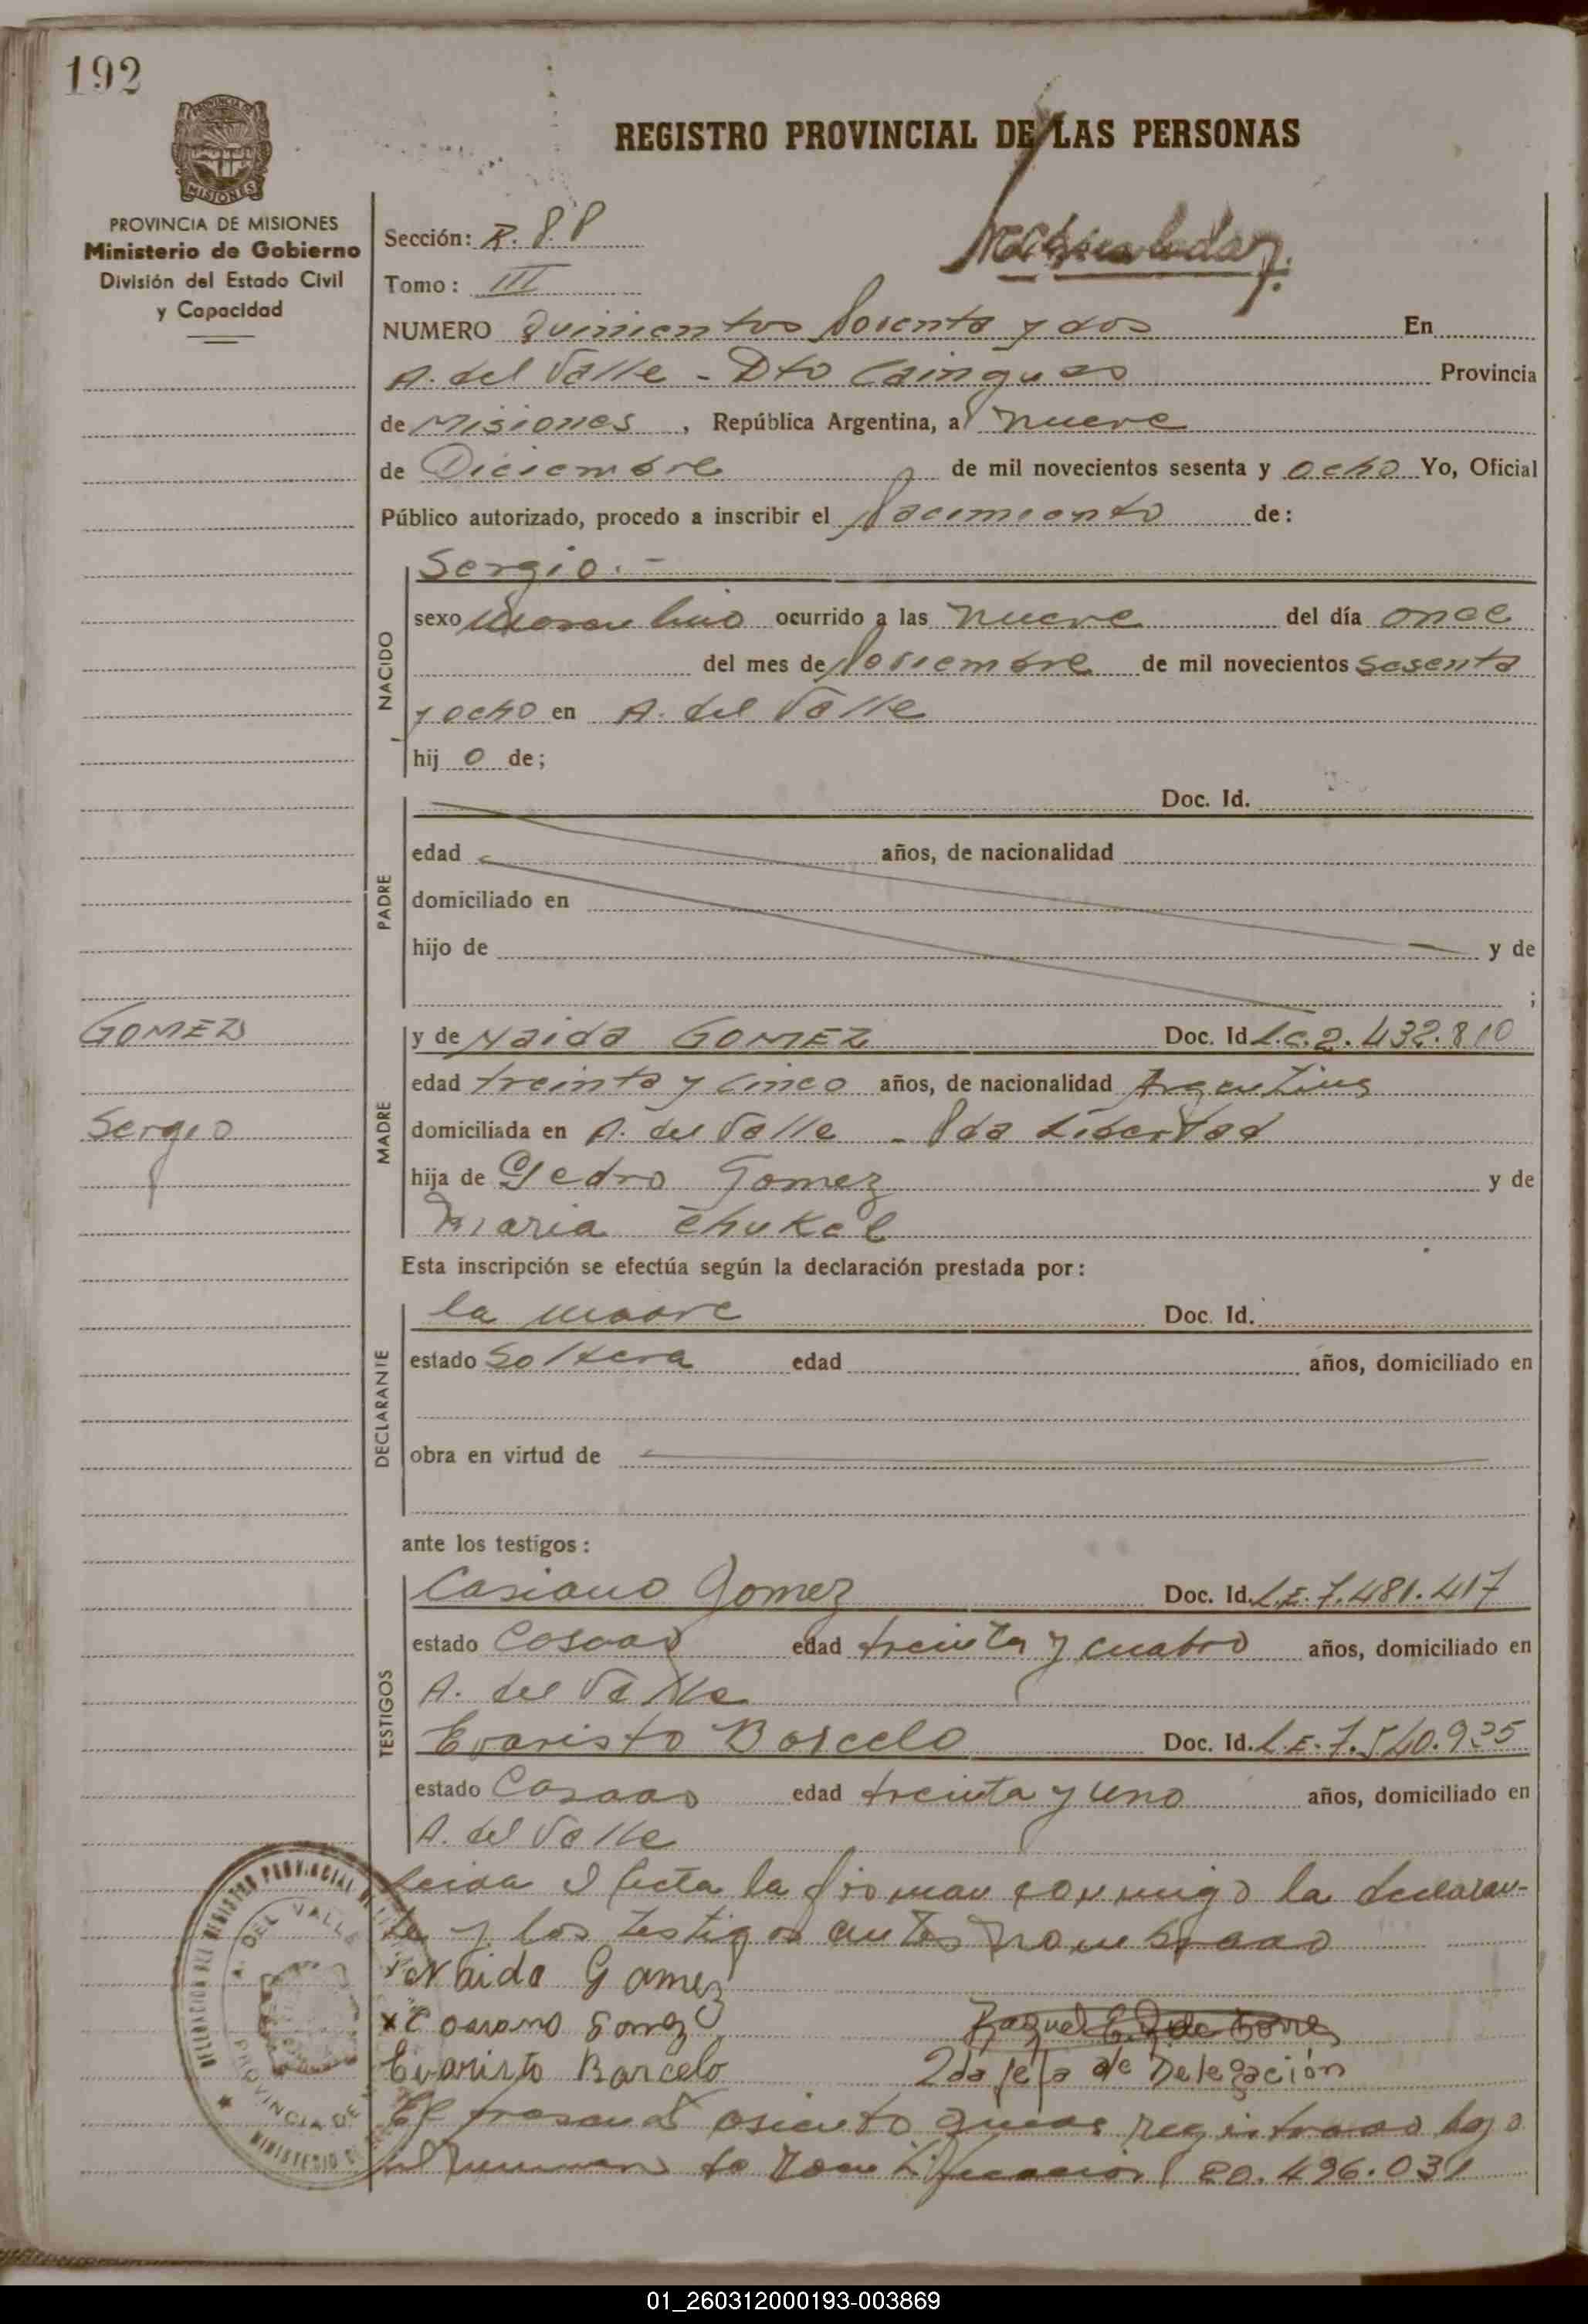 192
REGISTRO PROVINCIAL DE LAS PERSONAS
PROVINCIA DE MISIONES
Ministerio de Gobierno
División del Estado Civil
y Capacidad
Sección: R. 88
Tomo: III
NUMERO Quinientos Noventa y dos En
A. del Valle - Dto Cainguas Provincia
de Misiones, República Argentina, a nueve
de Diciembre de mil novecientos sesenta y ocho Yo, Oficial
Público autorizado, procedo a inscribir el Nacimiento de:
NACIDO
Sergio.-
sexo Masculino ocurrido a las nueve del día once
del mes de Noviembre de mil novecientos sesenta
y ocho en A. del Valle
hijo de;
PADRE
Doc. Id.
edad años, de nacionalidad
domiciliado en
hijo de y de
;
GOMEZ
Sergio
MADRE
y de Naida GOMEZ Doc. Id L.C. 2.432.810
edad treinta y cinco años, de nacionalidad Argentina
domiciliada en A. del Valle - Pda Libertad
hija de Pedro Gomez y de
Maria Chukel
Esta inscripción se efectúa según la declaración prestada por:
DECLARANTE
la madre Doc. Id.
estado Soltera edad años, domiciliado en
obra en virtud de
ante los testigos:
TESTIGOS
Casiano Gomez Doc. Id. L.E. 7.481.417
estado Casado edad treinta y cuatro años, domiciliado en
A. del Valle
Evaristo Barcelo Doc. Id. L.E. 7.540.935
estado Casado edad treinta y uno años, domiciliado en
A. del Valle
Leida el Acta la firman conmigo la declaran-
te y los testigos antes nombrado
Naida Gomez
x Casiano Gomez
Raquel de Torres
Evaristo Barcelo 2da Jefa de Delegación
El presente asiento queda registrado bajo
el numero de identificacion 20.496.031
DELEGACION DEL REGISTRO PROVINCIAL
A. DEL VALLE
PROVINCIA DE
MINISTERIO
01_260312000193-003869